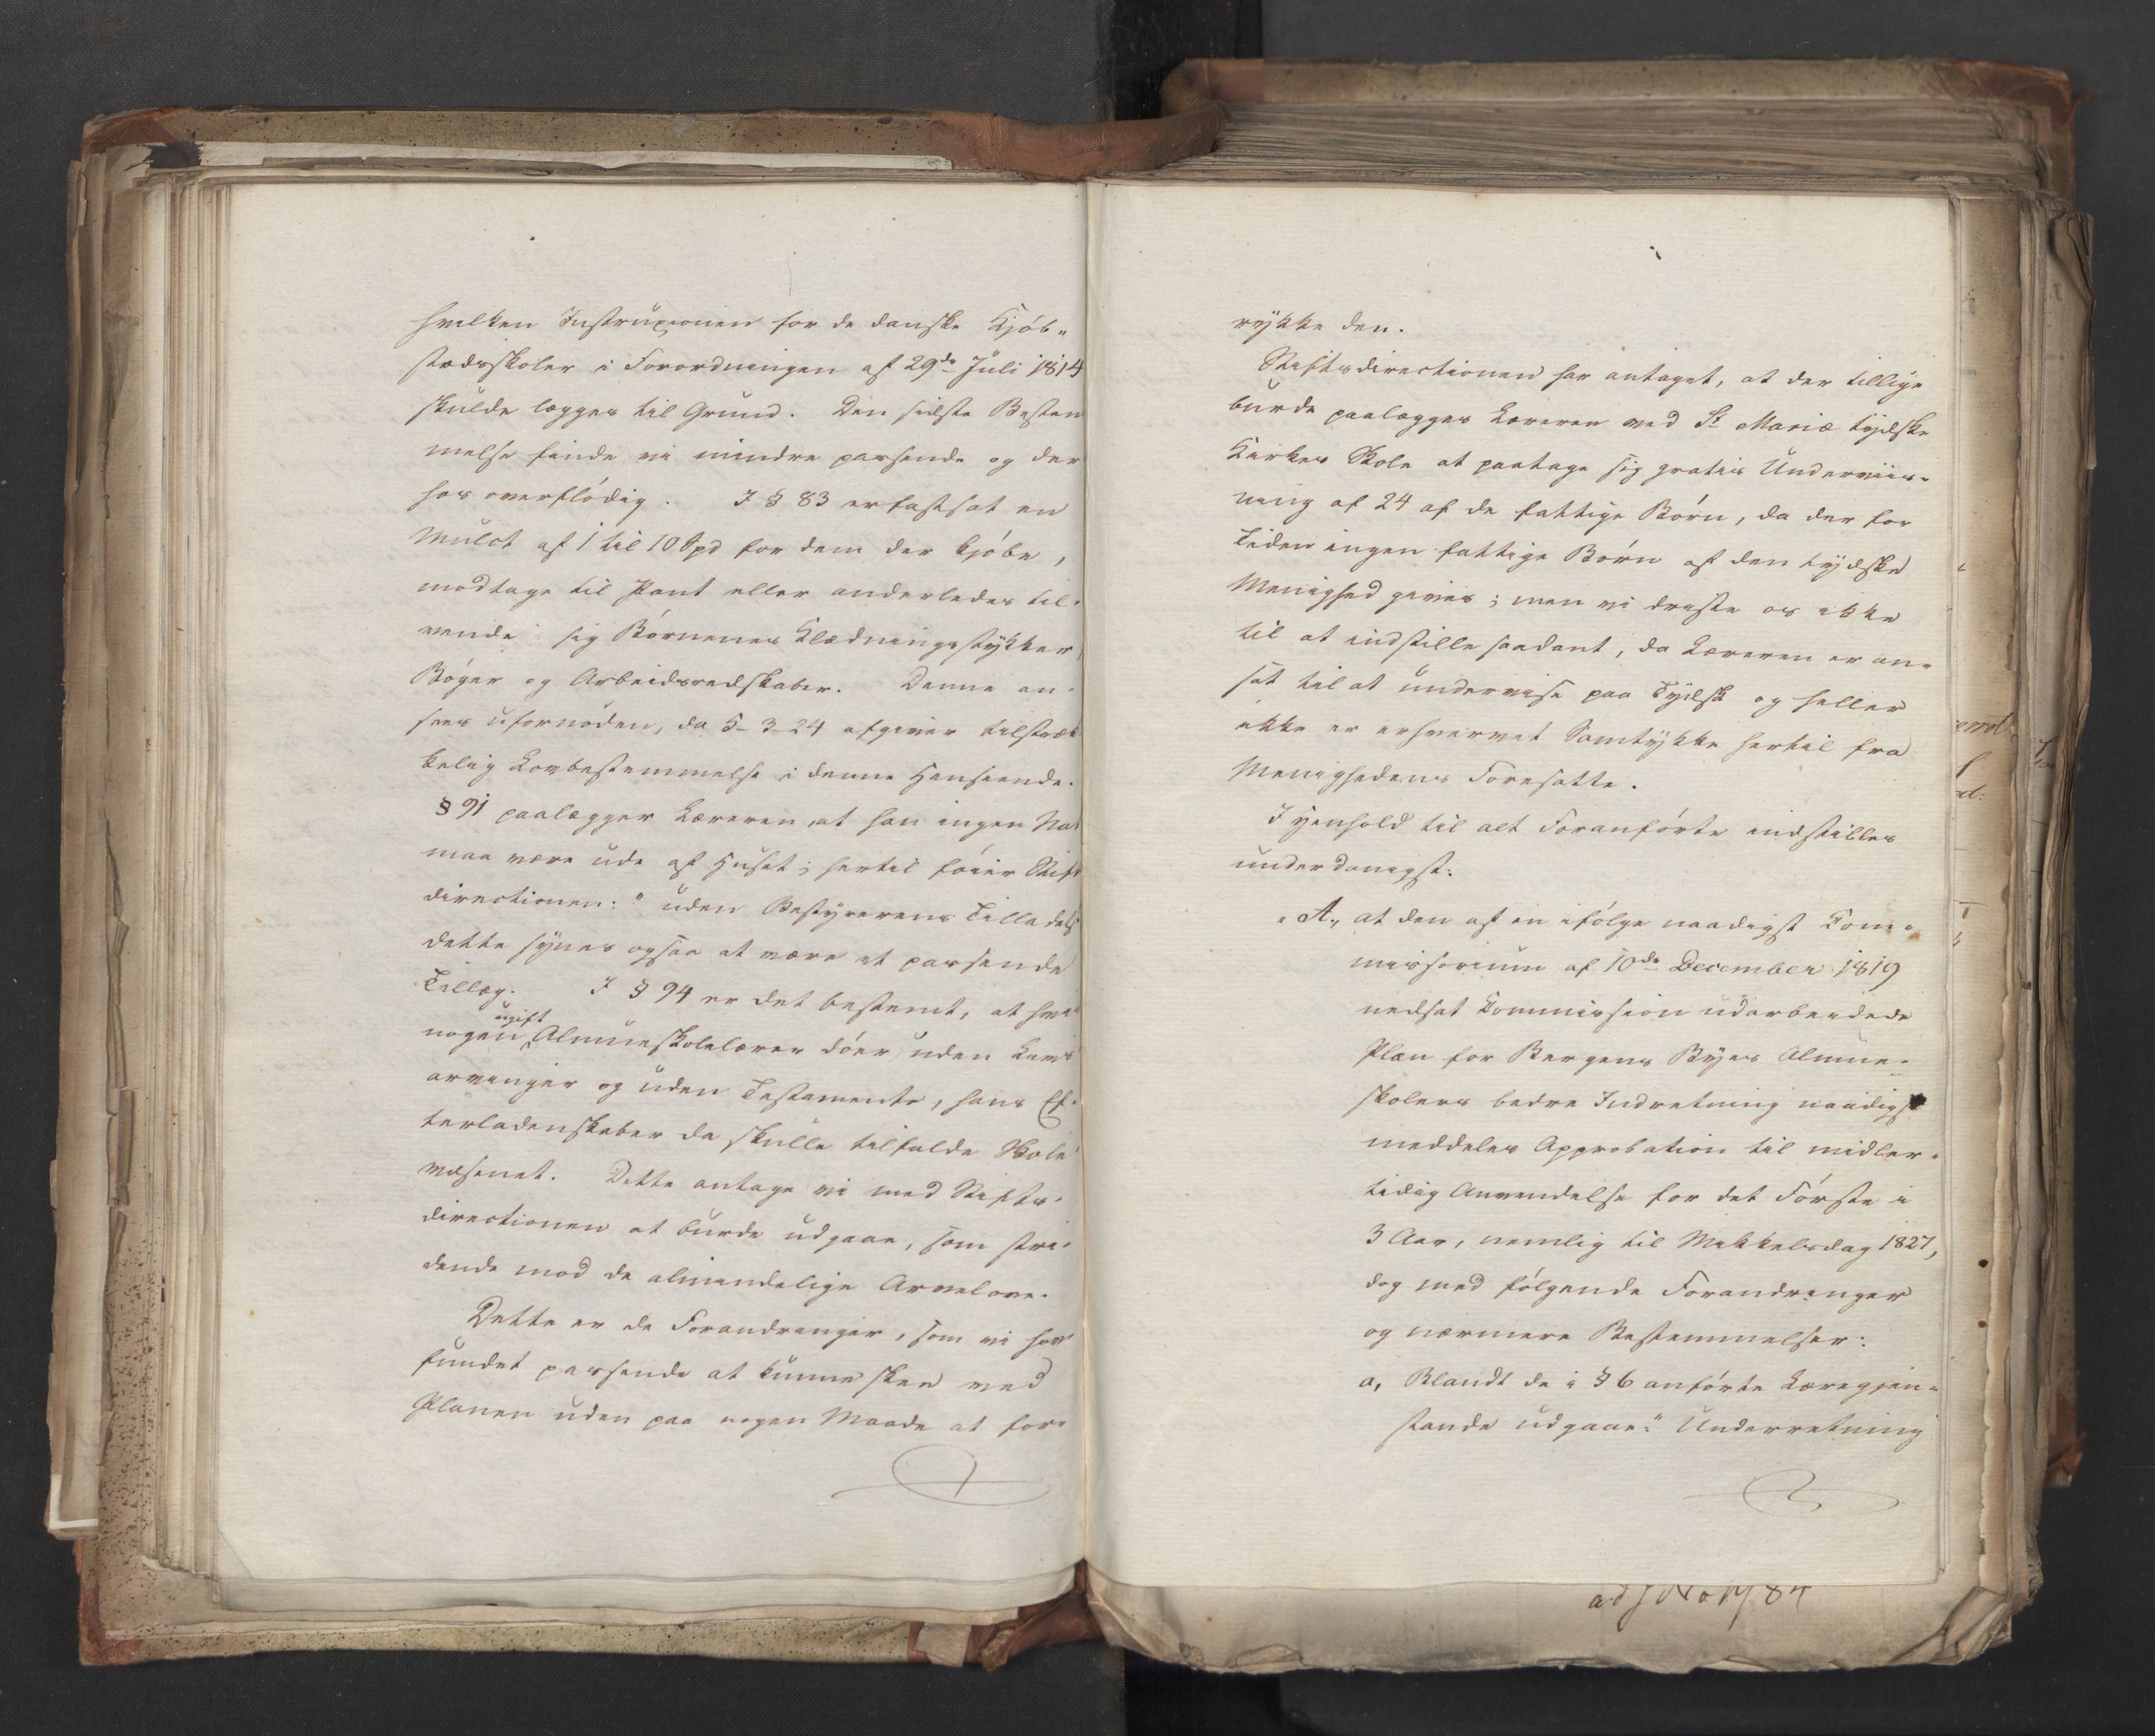 hvilken Instruxionen for de danske Kjöb„
stædsskoler i Forordningen af 29de Juli 1814
skulde lægges til Grund. Den sidste Bestem
melse finde vi mindre passende og der
hos overflödig. I § 83 er fastsat en
Mulct af 1 til 10 Spd for dem der kjöbe,
modtage til Pant eller anderledes til„
vende sig Börnenes Klædningsstykker,
Böger og Arbeidsredskaber. Denne an„
sees ufornöden, da 5-3-24 afgiver tilstræk
kelig Lovbestemmelse i denne Henseende.
§ 91 paalægger Læreren, at han ingen Nat
maa være ude af Huset; hertil föier Stifts
directionen: "uden Bestyrerens Tilladelse
dette synes ogsaa at være et passende
Tillæg. I § 94 er det bestemt, at hvis
ugift
nogen Almueskolelærer döer uden Livs
arvinger og uden Testamente, hans Ef„
terladenskaber da skulle tilfalde Skole
væsenet. Dette antage vi med Stifts„
directionen at burde udgaae, som stri„
dende mod de almindelige Arvelove.
Dette er de Forandringer, som vi have
fundet passende at kunne skee ved
Planen uden paa nogen Maade at for„
rykke den.
Stiftsdirectionen har antaget, at der tillige
burde paalægges Læreren ved St Mariæ tydske
Kirkes Skole at paatage sig gratis Underviis„
ning af 24 af de fattige Börn, da der for
Tiden ingen fattige Börn af den tydske
Menighed gives; men vi driste os ikke
til at indstille saadant, da Læreren er an„
sat til at undervise paa Tydsk og heller
ikke er erhvervet Samtykke hertil fra
Menighedens Foresatte.
I Henhold til alt Foranförte indstilles
underdanigst:
„A., at den af en ifölge naadigst Com„
missorium af 10de December 1819
nedsat Commission udarbeidede
Plan for Bergens Byes Almue„
skolers bedre Indretning naadigst
meddeles Approbation til midler„
tidig Anvendelse for det Förste i
3 Aar, nemlig til Mikkelsdag 1827,
dog med fölgende Forandringer
og nærmere Bestemmelser:
a, Blandt de i § 6 anförte Læregjen„
stande udgaaer: "Underretning